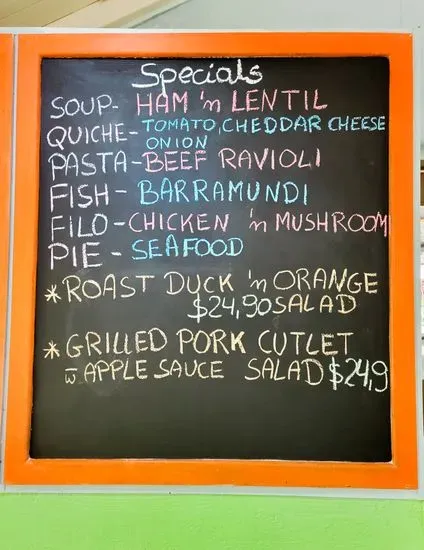 Specials
SOUP- HAM 'n LENTIL
QUICHE- TOMATO, CHEDDAR CHEESE
ONION
PASTA- BEEF RAVIOLI
FISH - BARRAMUNDI
FILO - CHICKEN 'n MUSHROOM
PIE - SEAFOOD
* ROAST DUCK 'n ORANGE
$24,90 SALAD
* GRILLED PORK CUTLET
w APPLE SAUCE SALAD $24,9